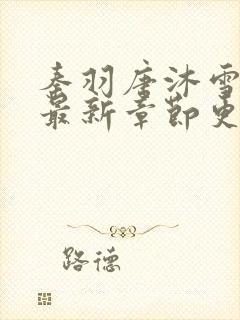 秦羽唐沐雪
最新章节更
路德